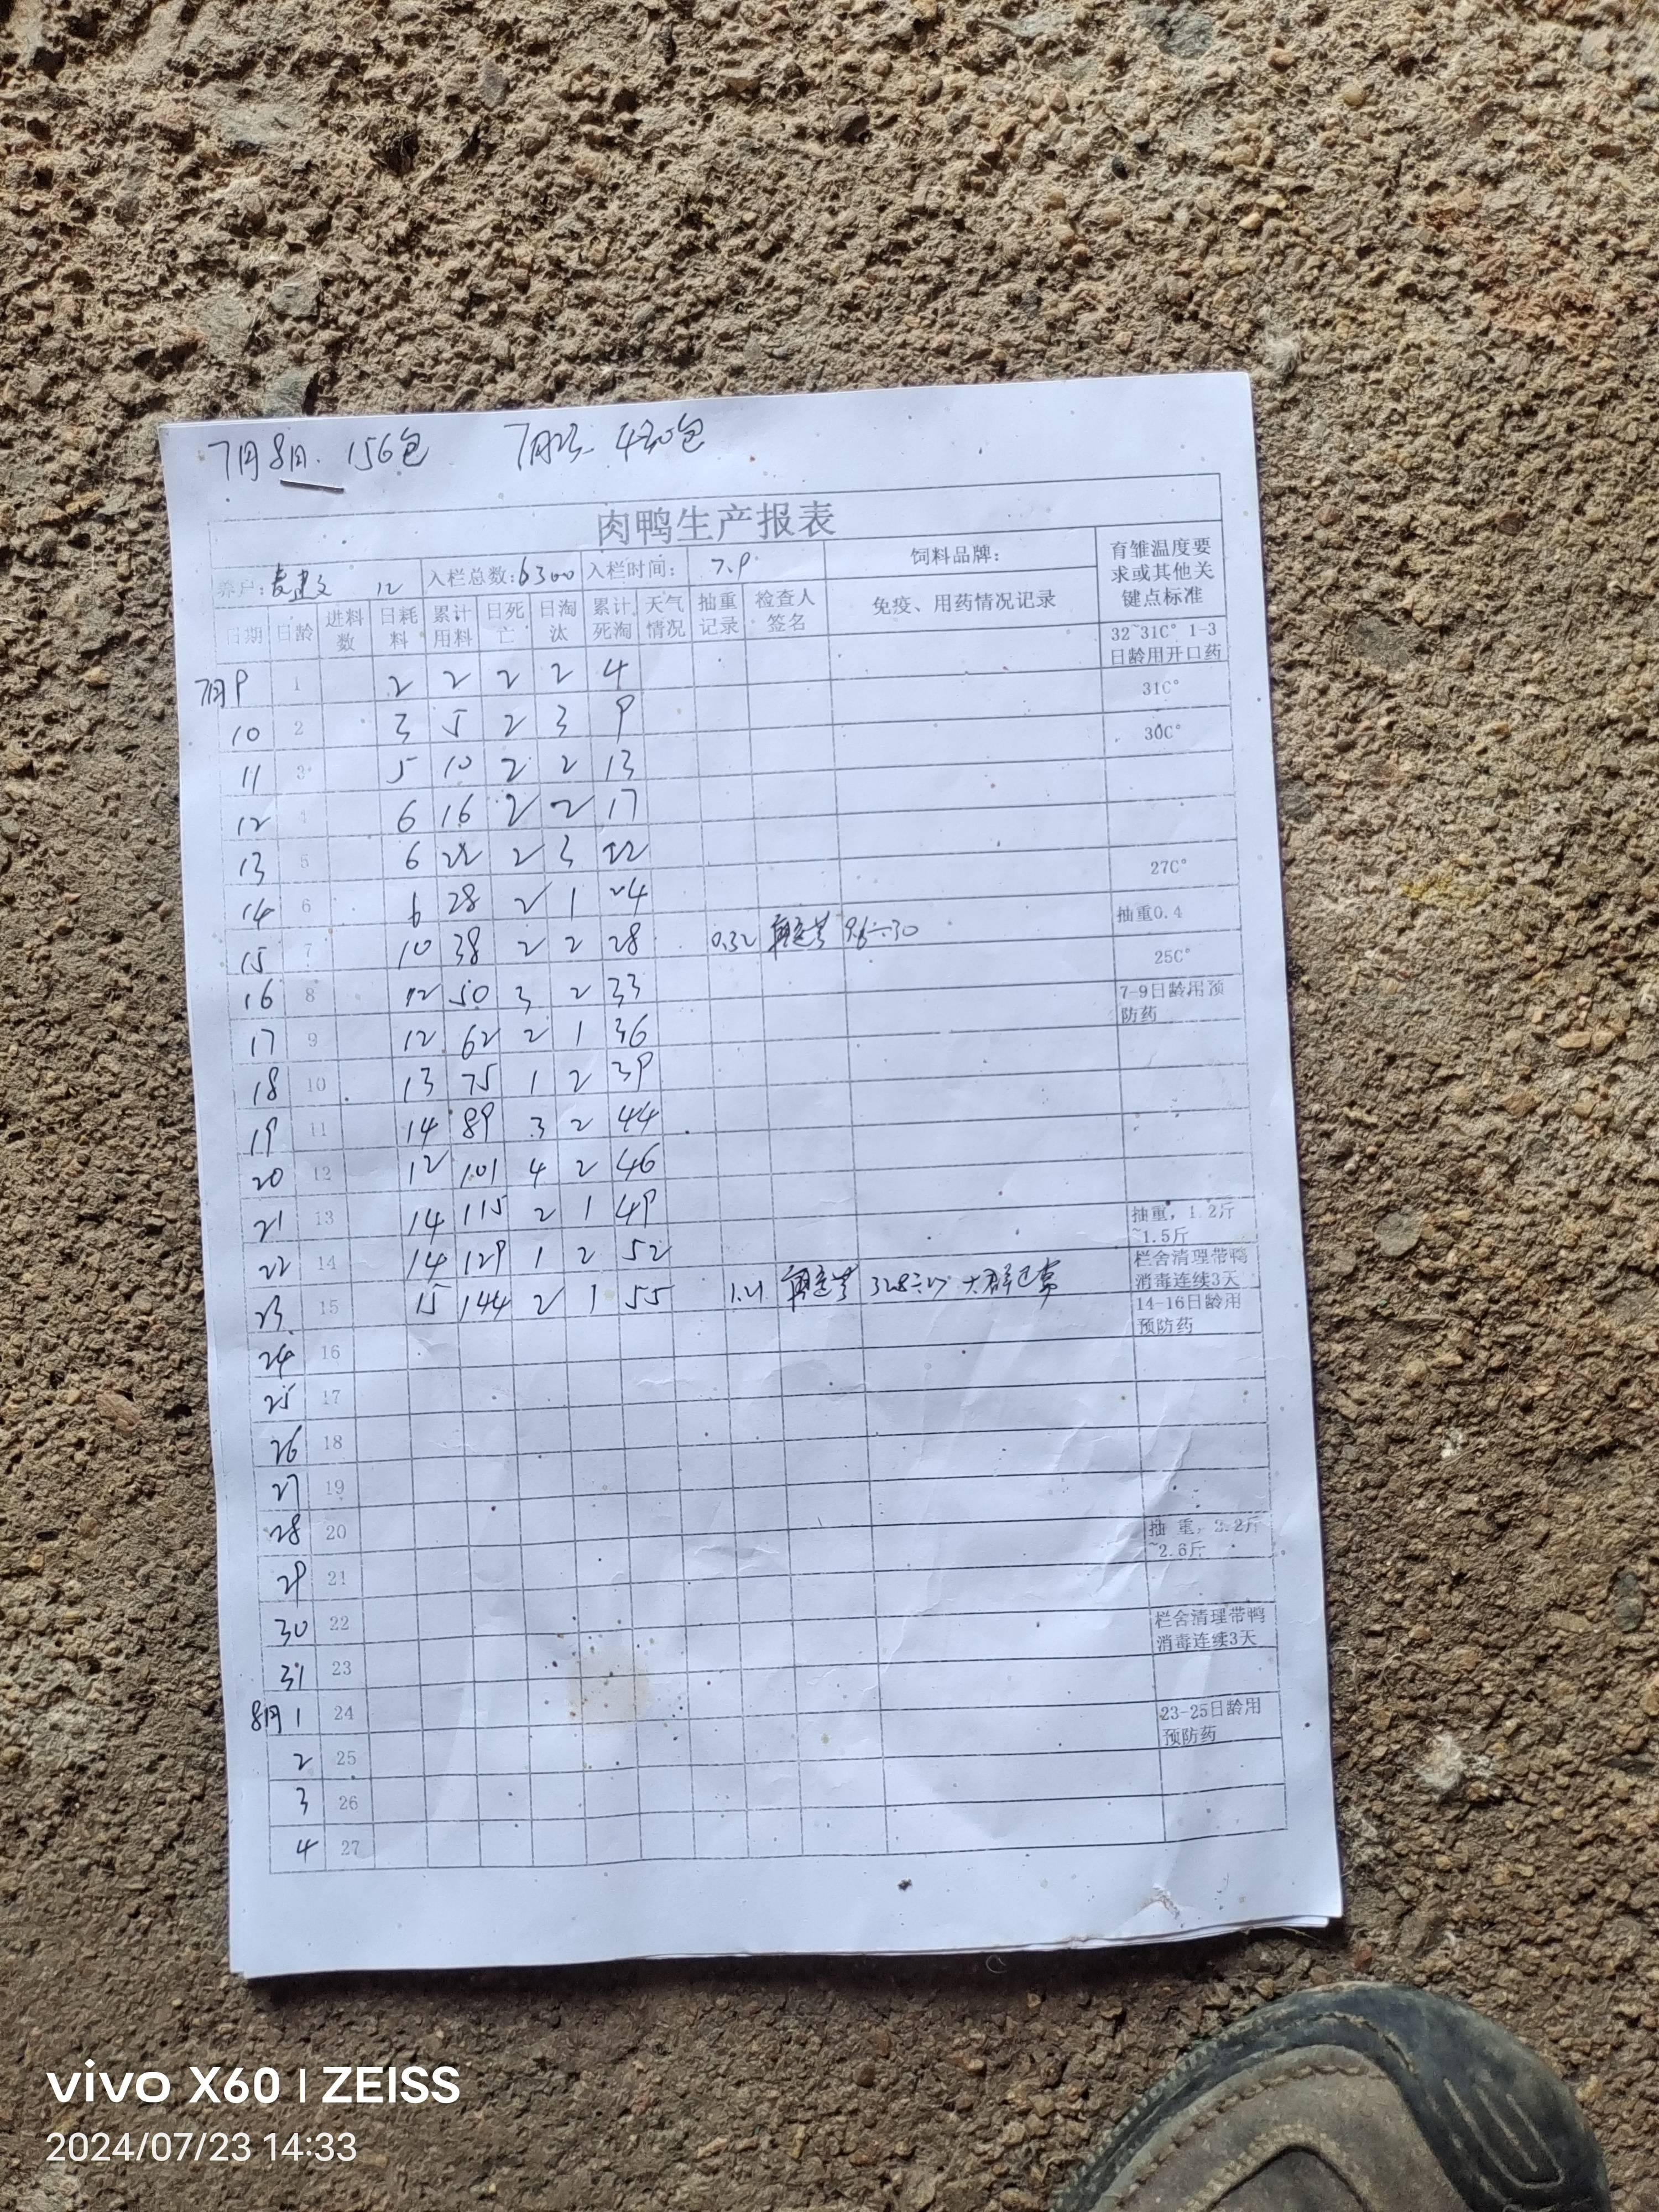 7月8日. 156包 7月23. 430包
肉鸭生产报表
养户: 12 入栏总数:6300 入栏时间: 7.9 饲料品牌: 育雏温度要求或其他关键点标准
日期 日龄 进料数 日耗料 累计用料 日死亡 日淘汰 累计死淘 天气情况 抽重记录 检查人签名 免疫、用药情况记录
32~31C° 1-3日龄用开口药
7月9 1 2 2 2 2 4
31C°
10 2 3 5 2 3 9
30C°
11 3 5 10 2 2 13
12 4 6 16 2 2 17
13 5 6 22 2 3 22
27C°
14 6 6 28 2 1 24
抽重0.4
15 7 10 38 2 2 28 0.32 9.6÷30
25C°
16 8 12 50 3 2 33
7-9日龄用预防药
17 9 12 62 2 1 36
18 10 13 75 1 2 39
19 11 14 89 3 2 44
20 12 12 101 4 2 46
21 13 14 115 2 1 49
抽重，1.2斤~1.5斤
22 14 14 129 1 2 52
栏舍清理带鸭消毒连续3天
23 15 15 144 2 1 55 1.21 大群正常
14-16日龄用预防药
24 16
25 17
26 18
27 19
28 20
抽 重，2.2斤~2.6斤
29 21
30 22
栏舍清理带鸭消毒连续3天
31 23
8月1 24
23-25日龄用预防药
2 25
3 26
4 27
vivo X60 | ZEISS
2024/07/23 14:33